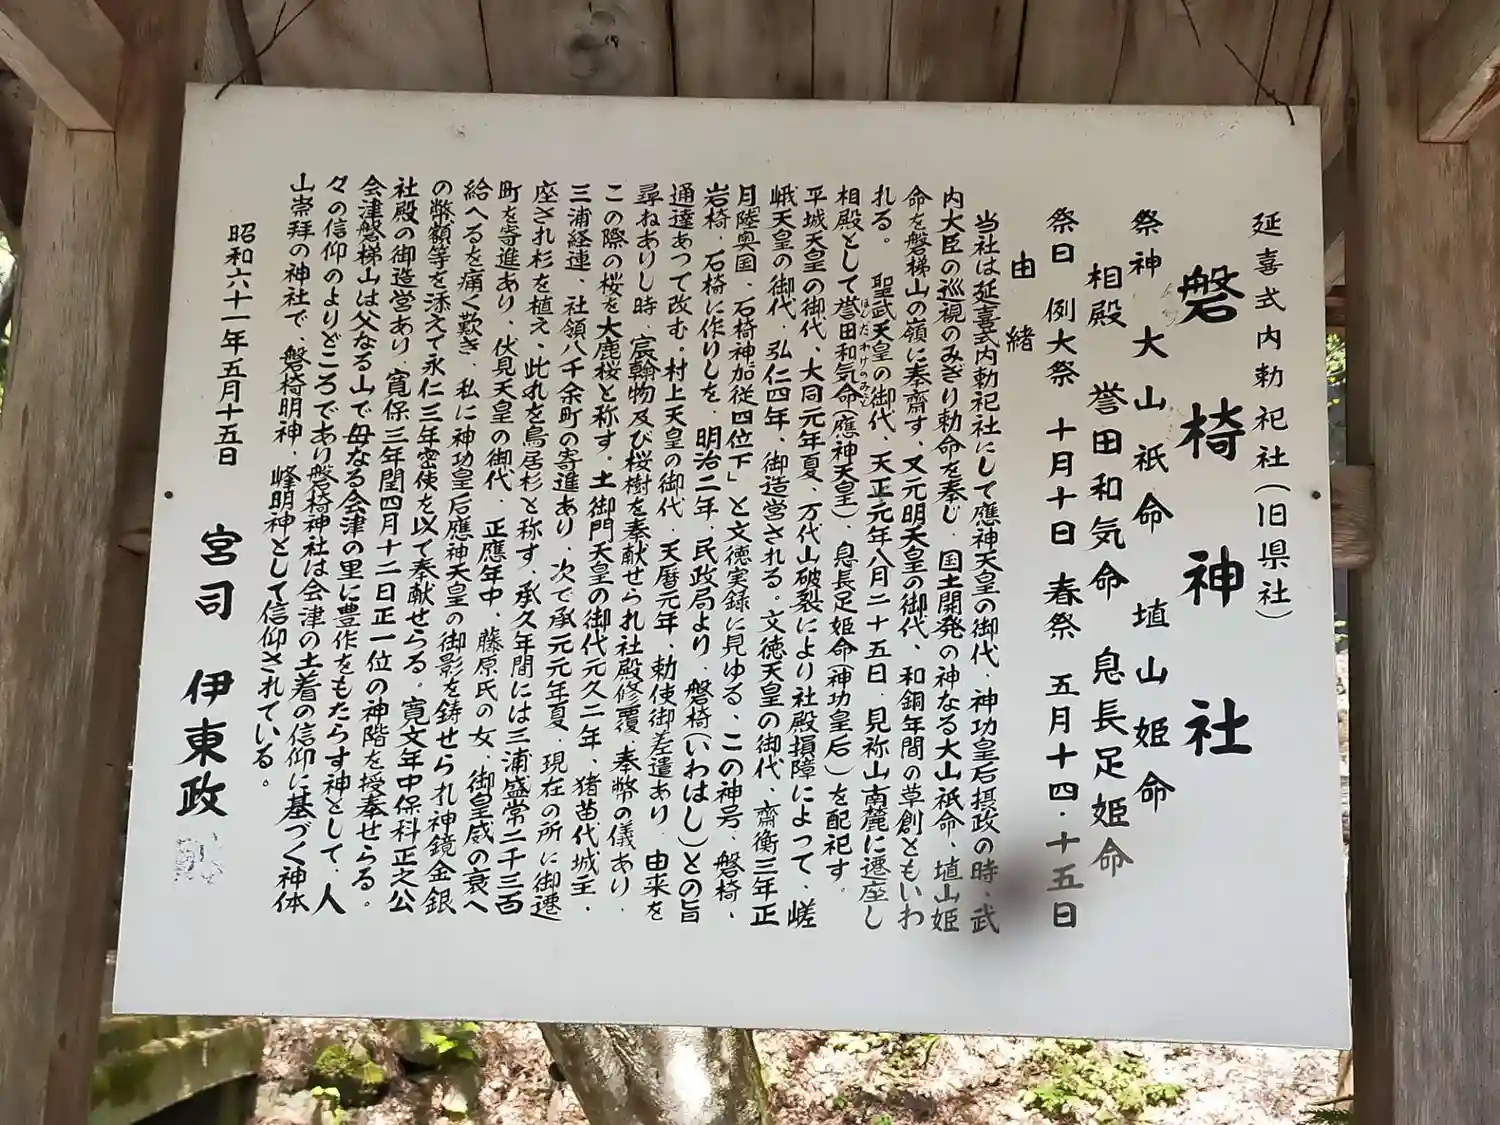 延喜式内勅祀社(旧県社)
磐椅神社
祭神 大山祇命 埴山姫命
相殿 誉田和気命 息長足姫命
祭日 例大祭 十月十日 春祭 五月十四・十五日
由緒
当社は延喜式内勅祀社にして應神天皇の御代、神功皇后摂政の時、武
内大臣の巡視のみぎり勅命を奉じ、国土開発の神なる大山祇命、埴山姫
命を磐梯山の嶺に奉齋す、又元明天皇の御代、和銅年間の草創ともいわ
れる。 聖武天皇の御代、天正元年八月二十五日、見祢山南麓に遷座し
相殿として誉田和気命(應神天皇)、息長足姫命(神功皇后)を配祀す。
ほんだわけのみこと
平城天皇の御代、大同元年夏、万代山破裂により社殿損障によって、嵯
峨天皇の御代、弘仁四年、御造営される。文徳天皇の御代、齋衡三年正
月陸奥国、石椅神加従四位下」と文徳実録に見ゆる、この神号、磐椅、
岩椅、石椅に作りしを、明治二年、民政局より、磐椅(いわはし)との旨
通達あって改む。村上天皇の御代、天暦元年、勅使御差遣あり、由来を
尋ねありし時、宸翰物及び桜樹を奉献せられ社殿修覆、奉幣の儀あり、
この際の桜を大鹿桜と称す。土御門天皇の御代元久二年、猪苗代城主、
三浦経連、社領八千余町の寄進あり、次で承元元年夏、現在の所に御遷
座ざれ杉を植え、此れを鳥居杉と称す、承久年間には三浦盛常二千三百
町を寄進あり、伏見天皇の御代、正應年中、藤原氏の女、御皇威の衰へ
給へるを痛く歎き、私に神功皇后應神天皇の御影を鋳せられ神鏡金銀
の幣額等を添えて永仁三年密使を以て奉献せらる。寛文年中保科正之公
社殿の御造営あり、寛保三年閏四月十二日正一位の神階を授奉せらる。
会津磐梯山は父なる山で母なる会津の里に豊作をもたらす神として、人
々の信仰のよりどころであり磐椅神社は会津の土着の信仰に基づく神体
山崇拝の神社で、磐椅明神、峰明神として信仰されている。
昭和六十一年五月十五日
宮司 伊東政